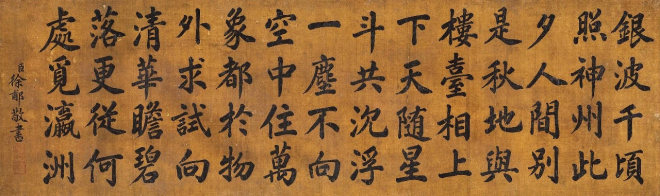 銀波千頃
照神州此
夕人間別
是秋地與
樓臺相上
下天随星
斗共沉浮
一塵不向
空中住萬
象都於物
外求試向
清華瞻碧
落更從何
處覓瀛洲
臣徐郙敬書